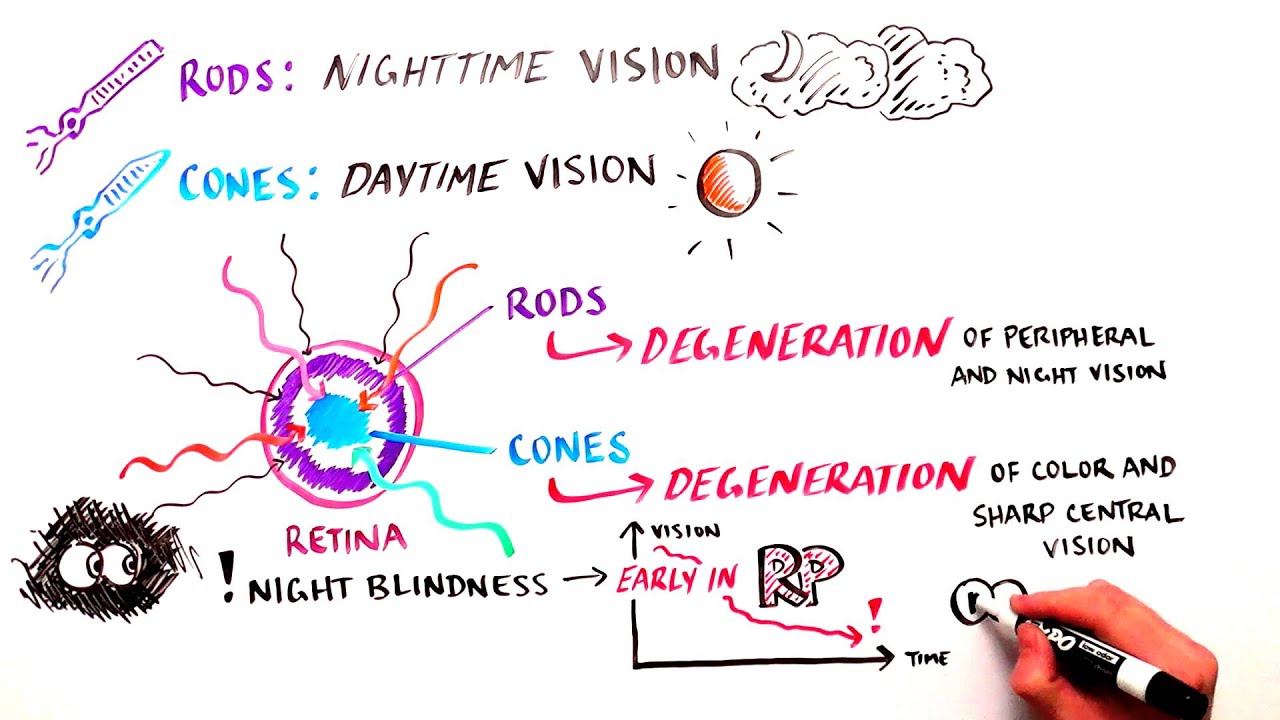 RODS: NIGHTTIME VISION
CONES: DAYTIME VISION
RODS
DEGENERATION OF PERIPHERAL
AND NIGHT VISION
CONES
DEGENERATION OF COLOR AND
SHARP CENTRAL
VISION
RETINA
! NIGHT BLINDNESS
VISION
EARLY IN RP
!
TIME
EXPO
low odor